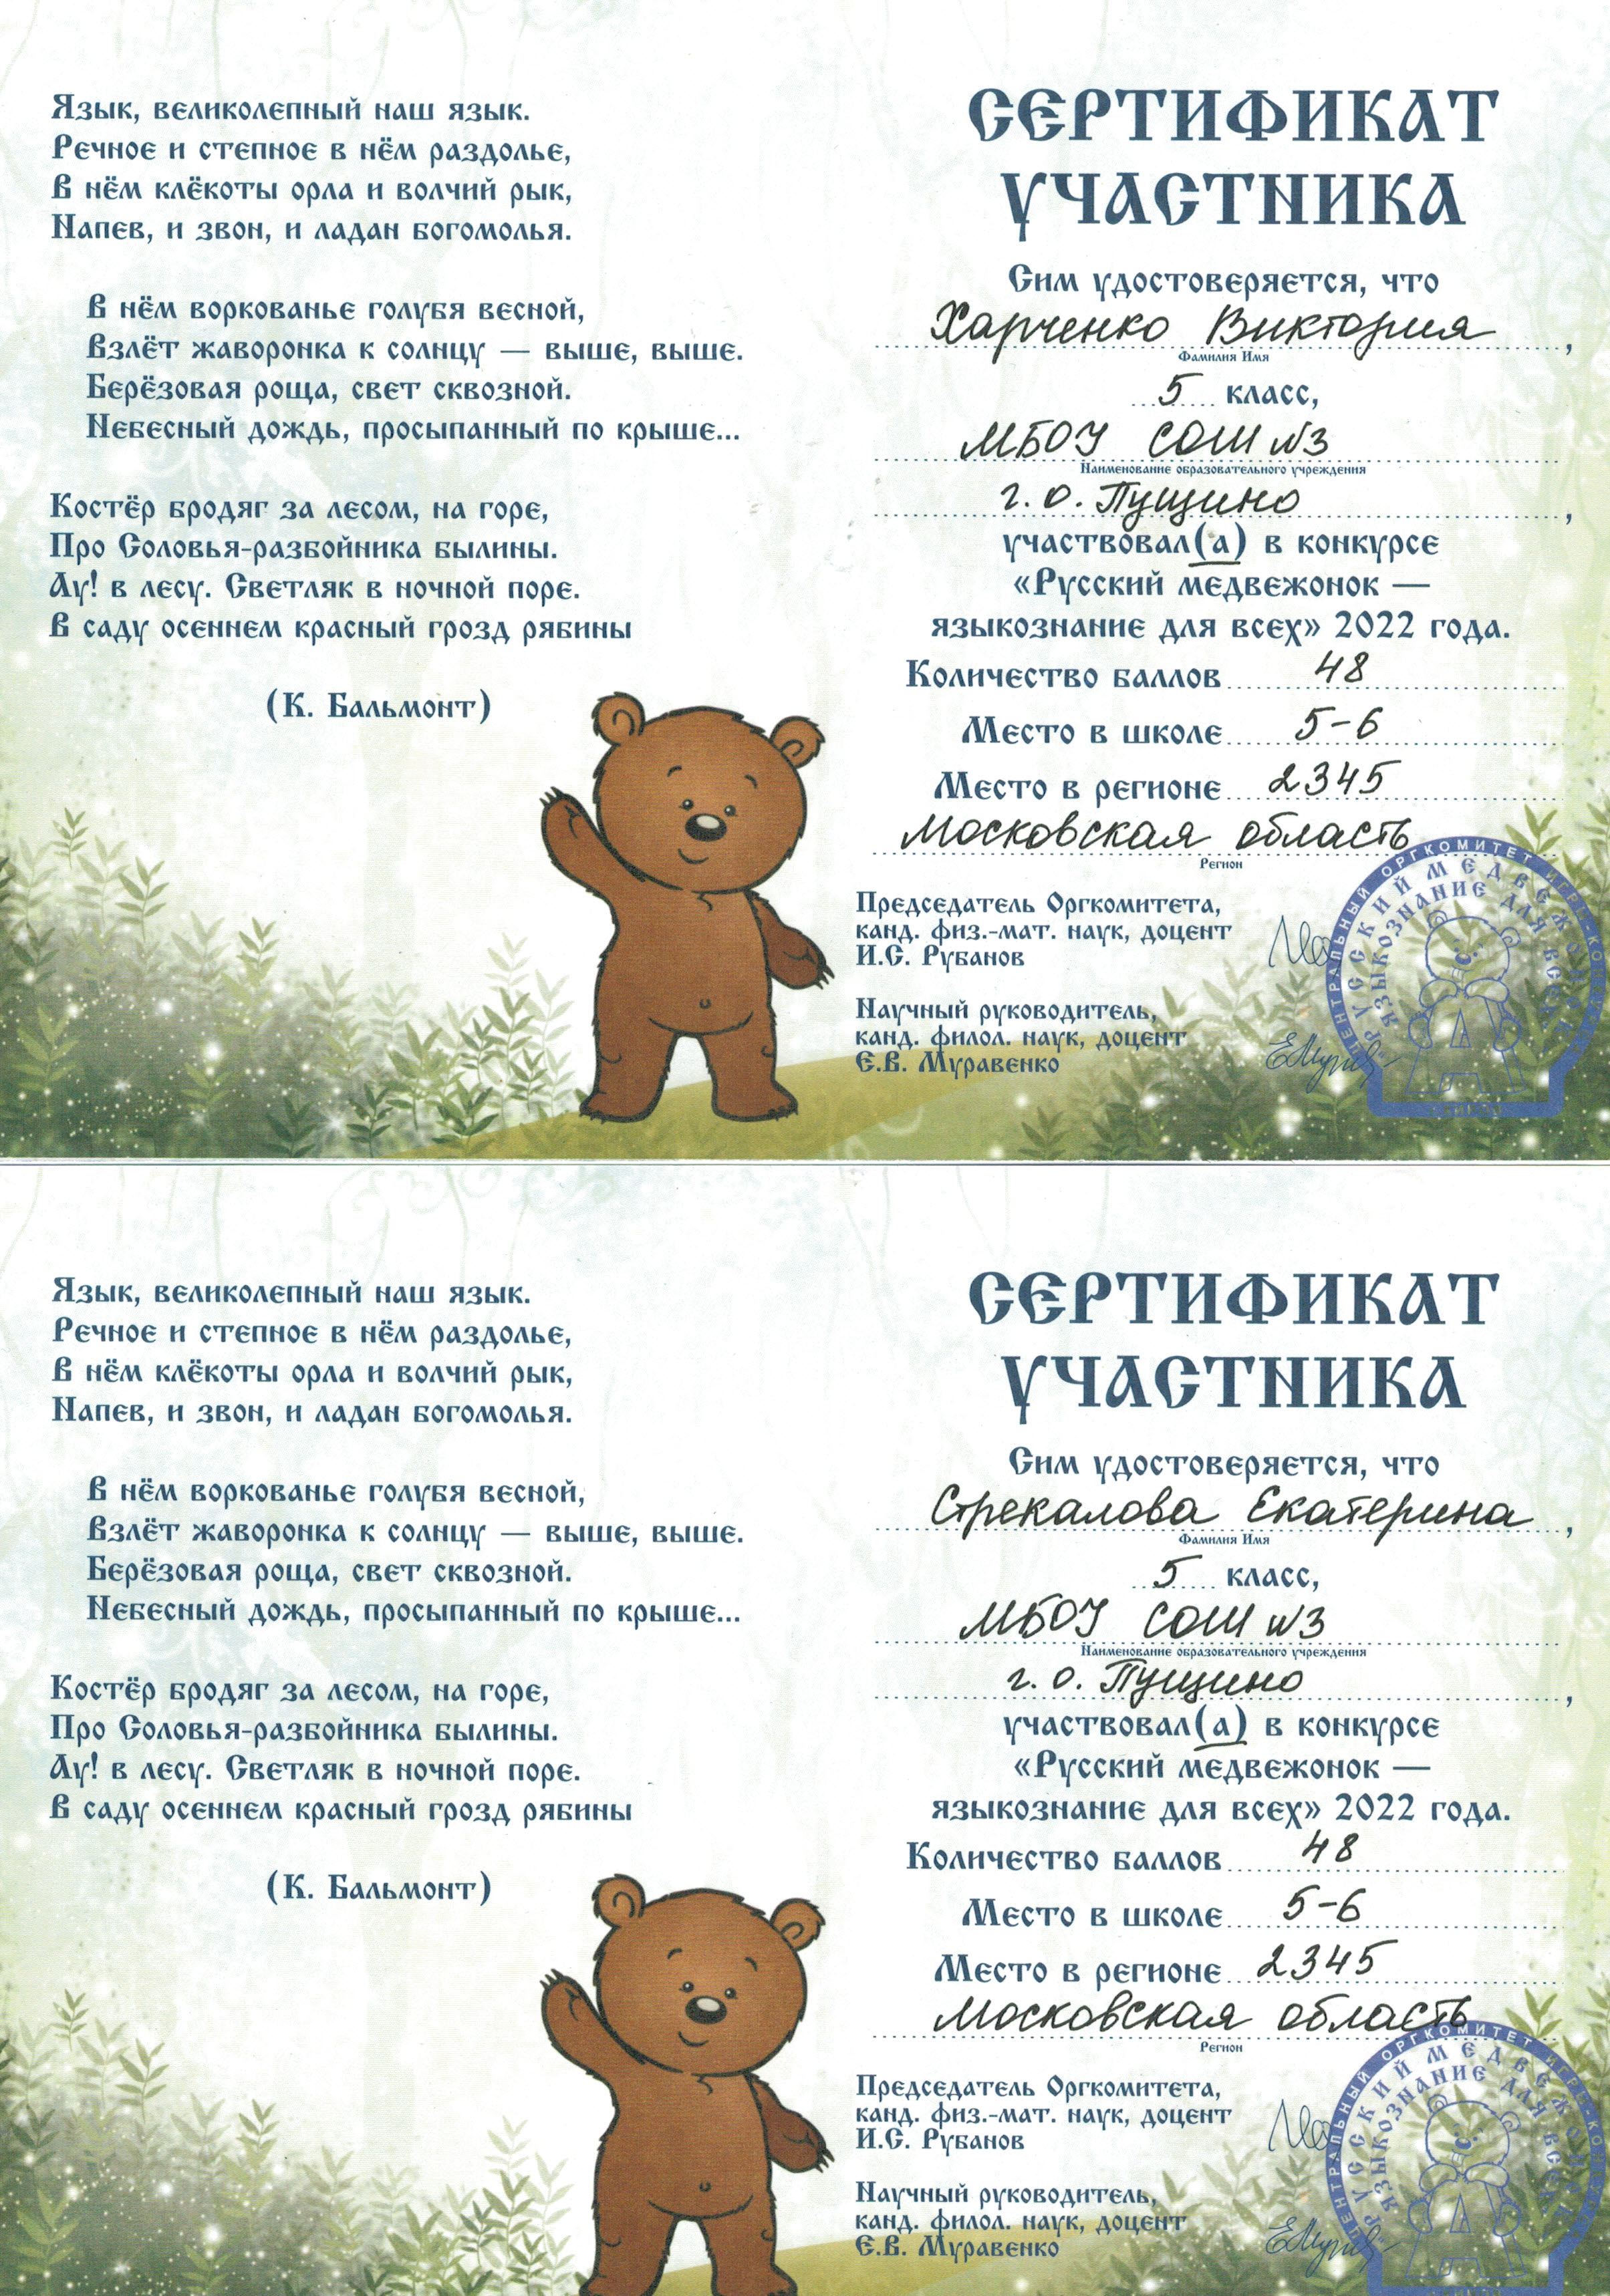 Язык, великолепный наш язык.
Речное и степное в нём раздолье,
В нём клёкоты орла и волчий рык,
Напев, и звон, и ладан богомолья.
В нём воркованье голубя весной,
Взлёт жаворонка к солнцу — выше, выше.
Берёзовая роща, свет сквозной.
Небесный дождь, просыпанный по крыше...
Костёр бродяг за лесом, на горе,
Про Соловья-разбойника былины.
Ау! в лесу. Светляк в ночной поре.
В саду осеннем красный грозд рябины
(К. Бальмонт)
СЕРТИФИКАТ
УЧАСТНИКА
Сим удостоверяется, что
Харченко Виктория,
Фамилия Имя
5 класс,
МБОУ СОШ №3
Наименование образовательного учреждения
г. о. Пущино,
участвовал(а) в конкурсе
«Русский медвежонок —
языкознание для всех» 2022 года.
Количество баллов 48
Место в школе 5-6
Место в регионе 2345
Московская область
Регион
Председатель Оргкомитета,
канд. физ.-мат. наук, доцент
И.С. Рубанов
Научный руководитель,
канд. филол. наук, доцент
Е.В. Муравенко
ЦЕНТРАЛЬНЫЙ ОРГКОМИТЕТ ИГРЫ-КОНКУРСА
РУССКИЙ МЕДВЕЖОНОК
ЯЗЫКОЗНАНИЕ ДЛЯ ВСЕХ
Язык, великолепный наш язык.
Речное и степное в нём раздолье,
В нём клёкоты орла и волчий рык,
Напев, и звон, и ладан богомолья.
В нём воркованье голубя весной,
Взлёт жаворонка к солнцу — выше, выше.
Берёзовая роща, свет сквозной.
Небесный дождь, просыпанный по крыше...
Костёр бродяг за лесом, на горе,
Про Соловья-разбойника былины.
Ау! в лесу. Светляк в ночной поре.
В саду осеннем красный грозд рябины
(К. Бальмонт)
СЕРТИФИКАТ
УЧАСТНИКА
Сим удостоверяется, что
Стрекалова Екатерина,
Фамилия Имя
5 класс,
МБОУ СОШ №3
Наименование образовательного учреждения
г. о. Пущино,
участвовал(а) в конкурсе
«Русский медвежонок —
языкознание для всех» 2022 года.
Количество баллов 48
Место в школе 5-6
Место в регионе 2345
Московская область
Регион
Председатель Оргкомитета,
канд. физ.-мат. наук, доцент
И.С. Рубанов
Научный руководитель,
канд. филол. наук, доцент
Е.В. Муравенко
ЦЕНТРАЛЬНЫЙ ОРГКОМИТЕТ ИГРЫ-КОНКУРСА
РУССКИЙ МЕДВЕЖОНОК
ЯЗЫКОЗНАНИЕ ДЛЯ ВСЕХ